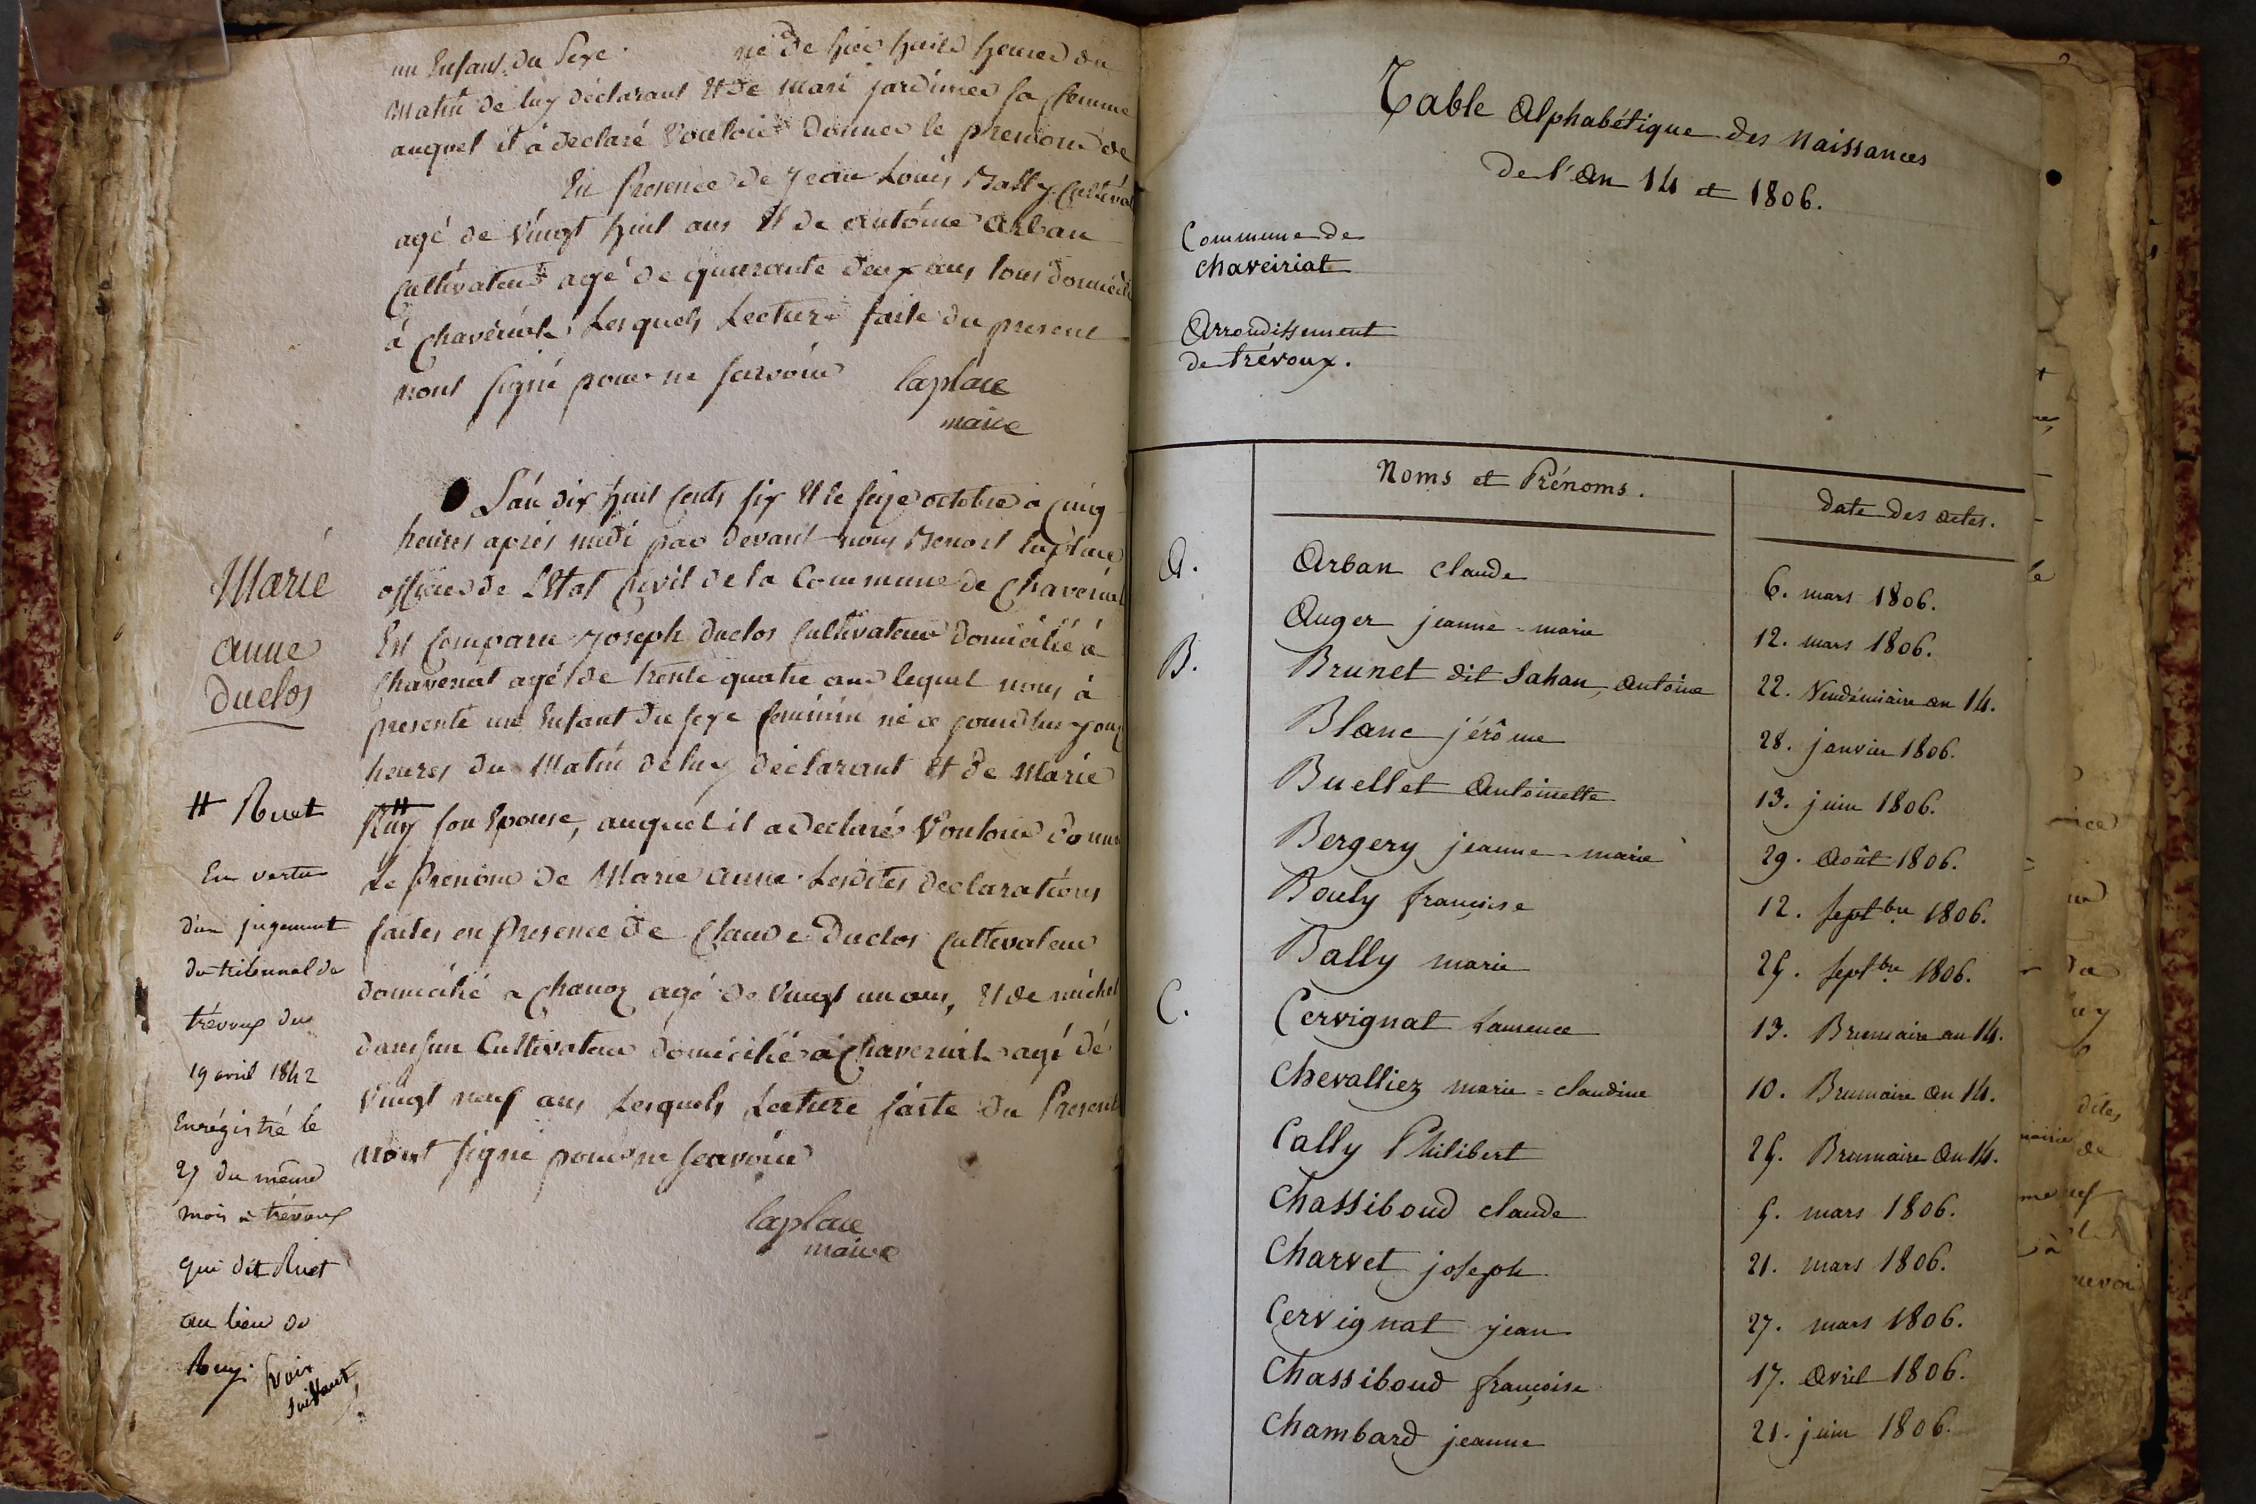 un Enfant du Sexe né de hier huit heures du
Matin de luy déclarant Et de Mari jardinier sa femme
auquel il a declaré Vouloir Donner le prenom de
En Presence de jean Louis Bally Cultivat
agé de Vingt huit ans Et de antoine arban
Cultivateur agé de quarante deux ans tous domicili
à Chavériat Lesquels Lecture faite du present
nont signé pour ne scavoir laplace
maire
L'an dix huit cents six Et le seize octobre a cinq
heures après midi par devant nous Benoit laplace
officier de L'Etat Civil de la Commune de Chaveriat
Est Comparu joseph duclos Cultivateur domicilié à
Chaveriat agé de trente quatre ans lequel nous à
presenté un Enfant du sexe feminin né ce jourdhuy onze
heures du Matin de luy déclarant Et de Marie
Ruy son Epouse, auquel il a declaré Vouloir donner
Le Prenom de Marie anne Lesdites declarations
faites en Presence de Claude Duclos Cultivateur
domicilié a Chanoz agé de Vingt un ans, Et de michel
Cultivateur domicilié a Chaveriat agé de
Vingt neuf ans Lesquels Lecture faite du Present
nont signé pour ne scavoir
laplace
maire
Marie
anne
Duclos
# Ruet
En vertu
d'un jugement
du tribunal de
trévoux du
19 avril 1842
Enrégistré le
27 du même
mois à trévoux
qui dit Ruet
au lieu de
Ruy. Voir
suivant
Table Alphabétique des Naissances
De l'An 14 et 1806.
Commune de
Chaveiriat
Arrondissement
de trévoux.
Noms et Prénoms. date des actes.
A. Arban claude 6. mars 1806.
Auger jeanne-marie 12. mars 1806.
B. Brunet dit Sahan, antoine 22. Vendémiaire an 14.
Blanc jérôme 28. janvier 1806.
Buellet Antoinette 13. juin 1806.
Bergery jeanne-marie 29. Août 1806.
Bouly françoise 12. septbre 1806.
Bally marie 25. septbre 1806.
C. Cervignat Laurence 13. Brumaire an 14.
Chevalliez marie=claudine 10. Brumaire an 14.
Cally Philibert 25. Brumaire an 14.
Chassiboud claude 5. mars 1806.
Charvet joseph 21. mars 1806.
Cervignat jean 27. mars 1806.
Chassiboud françoise 17. Avril 1806.
Chambard jeanne 21. juin 1806.